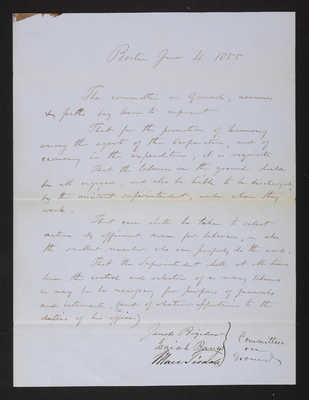 Boston June 4 1855
The committee on Grounds, avenues
& paths beg leave to report
That for the promotion of harmony
among the agents of the Corporation, and of
economy in the expenditures, it is requisite
That the laborers on the grounds shall
be all engaged, and also be liable to be discharged
by the assistant superintendent, under whom they
work.
That care shall be taken to select
active & efficient men for laborers, & also
the smallest number, who can properly do the work.
That the Superintendent shall at all times
have the control and selection of as many laborers
as may be necessary for purposes of funerals
and interments, (and of
duties of his office)
Committee
on
Grounds